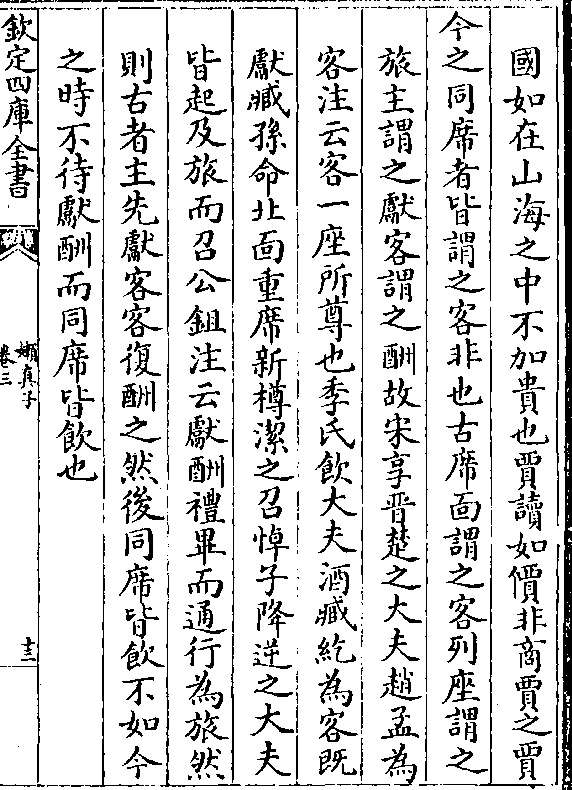 國如在山海之中不加貴也賈讀如價非商賈之賈
今之同席者皆謂之客非也古席面謂之客列座謂之
旅主謂之獻客謂之酬故宋享晉楚之大夫趙孟為
客注云客一座所尊也季氏飲大夫酒臧紇為客既
獻臧孫命北面重席新樽潔之召悼子降逆之大夫
皆起及旅而召公鉏注云獻酬禮畢而通行為旅然
則古者主先獻客客復酬之然後同席皆飲不如今
之時不待獻酬而同席皆飲也
欽定四庫全書
嬾真子
卷三
十三